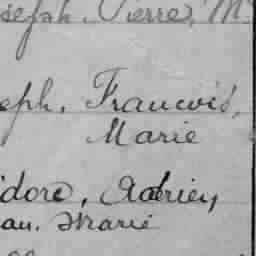 seph, Pierre, M
eph. Francois,
Marie
idore, Adrien,
au. Marie